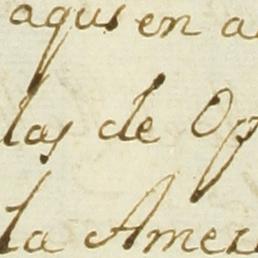 aqui en a
las de Op
la Amer